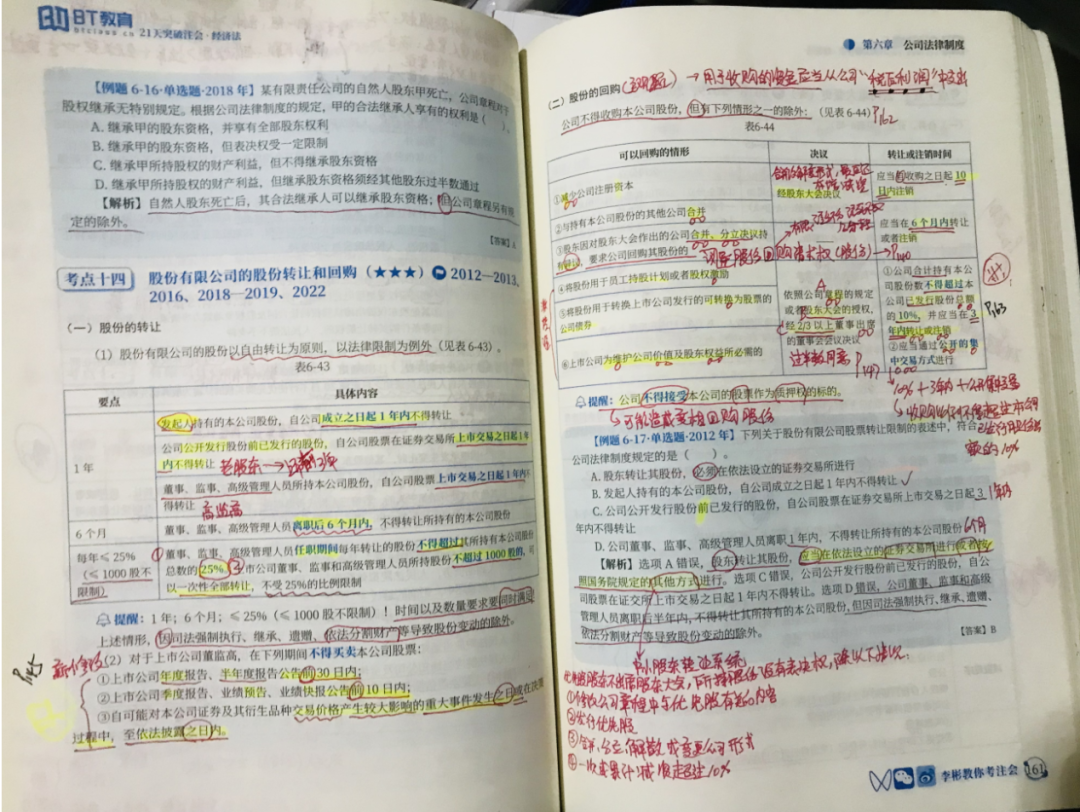 BT教育
21天突破注会·经济法
【例题 6-16·单选题·2018 年】某有限责任公司的自然人股东甲死亡，公司章程对于
股权继承无特别规定。根据公司法律制度的规定，甲的合法继承人享有的权利是（ ）。
A. 继承甲的股东资格，并享有全部股东权利
B. 继承甲的股东资格，但表决权受一定限制
C. 继承甲所持股权的财产利益，但不得继承股东资格
D. 继承甲所持股权的财产利益，但继承股东资格须经其他股东过半数通过
【解析】自然人股东死亡后，其合法继承人可以继承股东资格；但公司章程另有规
定的除外。
【答案】A
考点十四 股份有限公司的股份转让和回购（★★★） 2012—2013、
2016、2018—2019、2022
（一）股份的转让
（1）股份有限公司的股份以自由转让为原则，以法律限制为例外（见表 6-43）。
表6-43
要点 具体内容
发起人持有的本公司股份，自公司成立之日起 1 年内不得转让
公司公开发行股份前已发行的股份，自公司股票在证券交易所上市交易之日起 1 年
1 年
内不得转让 老股东
董事、监事、高级管理人员所持本公司股份，自公司股票上市交易之日起 1 年内不
得转让 董监高
6 个月 董事、监事、高级管理人员离职后 6 个月内，不得转让所持有的本公司股份
每年≤ 25%
（≤ 1000 股不
限制）
董事、监事、高级管理人员任职期间每年转让的股份不得超过其所持有本公司股份
总数的 25%。上市公司董事、监事和高级管理人员所持股份不超过 1000 股的，可
以一次性全部转让，不受 25%的比例限制
提醒：1 年；6 个月；≤ 25%（≤ 1000 股不限制）！时间以及数量要求要同时满足
上述情形，因司法强制执行、继承、遗赠、依法分割财产等导致股份变动的除外。
P145
（2）对于上市公司董监高，在下列期间不得买卖本公司股票：
①上市公司年度报告、半年度报告公告前 30 日内；
②上市公司季度报告、业绩预告、业绩快报公告前 10 日内；
③自可能对本公司证券及其衍生品种交易价格产生较大影响的重大事件发生之日或在决策
过程中，至依法披露之日内。
第六章 公司法律制度
（二）股份的回购 → 用于收购的资金应当从公司“税后利润”中支出
公司不得收购本公司股份，但有下列情形之一的除外：（见表 6-44） P162
表6-44
可以回购的情形 决议 转让或注销时间
①减少公司注册资本
经股东大会决议
应当自收购之日起 10
日内注销
②与持有本公司股份的其他公司合并
③股东因对股东大会作出的公司合并、分立决议持
异议，要求公司收购其股份的
应当在 6 个月内转让
或者注销
P140
④将股份用于员工持股计划或者股权激励
⑤将股份用于转换上市公司发行的可转换为股票的
公司债券
⑥上市公司为维护公司价值及股东权益所必需的
依照公司章程的规定
或者股东大会的授权，
经 2/3 以上董事出席
的董事会会议决议
过半数同意 P147
①公司合计持有本公
司股份数不得超过本
公司已发行股份总额
的 10%，并应当在 3
年内转让或注销
②应当通过公开的集
中交易方式进行
P163
提醒：公司不得接受本公司的股票作为质押权的标的。
可能造成变相回购股份
10%+3年内+公开集中交易
【例题 6-17·单选题·2012 年】下列关于股份有限公司股票转让限制的表述中，符合
公司法律制度规定的是（ ）。
A. 股东转让其股份，必须在依法设立的证券交易所进行
B. 发起人持有的本公司股份，自公司成立之日起 1 年内不得转让
C. 公司公开发行股份前已发行的股份，自公司股票在证券交易所上市交易之日起 3 1年内
年内不得转让
D. 公司董事、监事、高级管理人员离职 1 年内，不得转让所持有的本公司股份 6个月
【解析】选项 A 错误，股东转让其股份，应当在依法设立的证券交易所进行或者按
照国务院规定的其他方式进行。选项 C 错误，公司公开发行股份前已发行的股份，自公
司股票在证交所上市交易之日起 1 年内不得转让。选项 D 错误，公司董事、监事和高级
管理人员离职后半年内，不得转让其所持有的本公司股份，但因司法强制执行、继承、遗赠、
依法分割财产等导致股份变动的除外。
【答案】B
中小股东转让系统
优先股股东不出席股东大会，所持股份没有表决权，除以下情况：
①修改公司章程中与优先股有关的内容
②发行优先股
③合并、分立、解散或变更公司形式
④一次或累计减资超过10%
李彬教你考注会 161